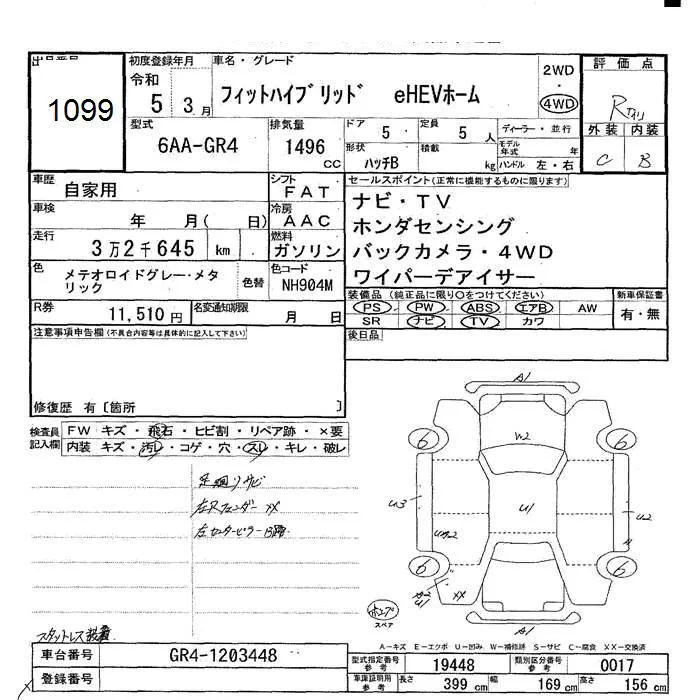 出品番号
1099
初度登録年月
令和
5 3 月
車名・グレード
フィットハイブリッド eHEVホーム
2WD
・
4WD
評価点
R
外装 内装
C B
型式
6AA-GR4
排気量
1496
cc
ドア 5
定員 5 人
形状
ハッチB
積載
kg
ディーラー・並行
モデル年式 年
ハンドル 左・右
車歴
自家用
シフト
FAT
車検
年 月( 日)
冷房
AAC
走行
3万2千645 km
燃料
ガソリン
色
メテオロイドグレー・メタリック
色替
色コード
NH904M
R券
11,510 円
名変通知期限
月 日
セールスポイント(正常に機能するものに限ります)
ナビ・TV
ホンダセンシング
バックカメラ・4WD
ワイパーデアイサー
装備品 (純正品に限り○をつけてください)
PS PW ABS エアB AW
SR ナビ TV カワ
新車保証書
有・無
後日品
注意事項申告欄(不具合内容等は具体的に記入して下さい)
修復歴 有〔箇所 〕
検査員記入欄
FW キズ・飛石・ヒビ割・リペア跡・×要
内装 キズ・汚レ・コゲ・穴・スレ・キレ・破レ
足廻リサビ
左Rフェンダー XX
左センターピラー
スタットレス装着
A1
W2
6
6
U3
U1
U2
6
6
A2
U1
XX
A1
スペア
A-キズ E-エクボ U-凹み W-補修跡 S-サビ C-腐食 XX-交換済
車台番号
GR4-1203448
登録番号
型式指定番号
参考
19448
類別区分番号
参考
0017
車庫証明用
参考
長さ
399 cm
幅
169 cm
高さ
156 cm